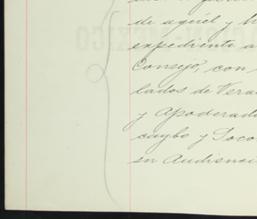 de aquel y
expediente a
Consejo, con
lados de Vera
y Apoderad
caybo y Soco
en Audienci